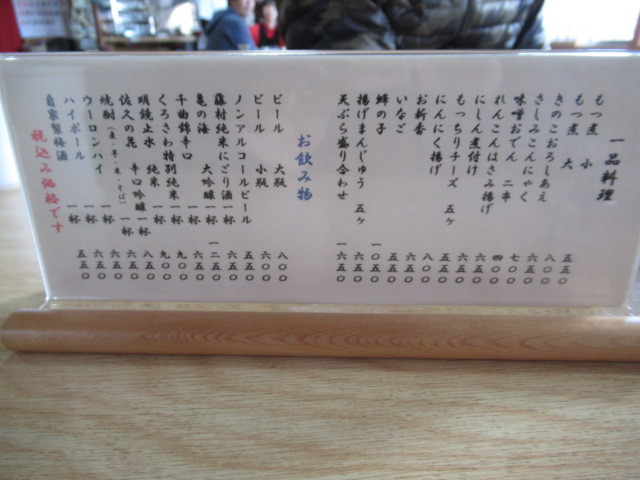 一品料理
もつ煮 小 五五〇
もつ煮 大 八〇〇
きのこおろしあえ 六五〇
さしみこんにゃく 七〇〇
味噌おでん 二串 四〇〇
れんこんはさみ揚げ 六五〇
にしん煮付け 六五〇
もっちりチーズ 五ヶ 五五〇
にんにく揚げ 八〇〇
お新香 五五〇
いなご 五五〇
蜂の子 一〇五〇
揚げまんじゅう 五ヶ 六五〇
天ぷら盛り合わせ 一六五〇
お飲み物
ビール 大瓶 八〇〇
ビール 小瓶 六〇〇
ノンアルコールビール 五五〇
藤村純米にごり酒 一杯 六五〇
亀の海 大吟醸 一杯 一二五〇
千曲錦辛口 一杯 六五〇
くろさわ特別純米 一杯 九〇〇
明鏡止水 純米 一杯 九〇〇
佐久の花 辛口吟醸 一杯 八五〇
焼酎(麦・芋・米・そば) 一杯 六五〇
ウーロンハイ 一杯 五五〇
ハイボール 一杯 六五〇
自家製梅酒 一杯 五五〇
税込み価格です